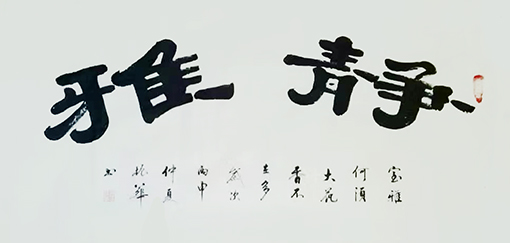 静雅
室雅
何須
大花
香不
在多
歲次
丙申
仲夏
振華
书